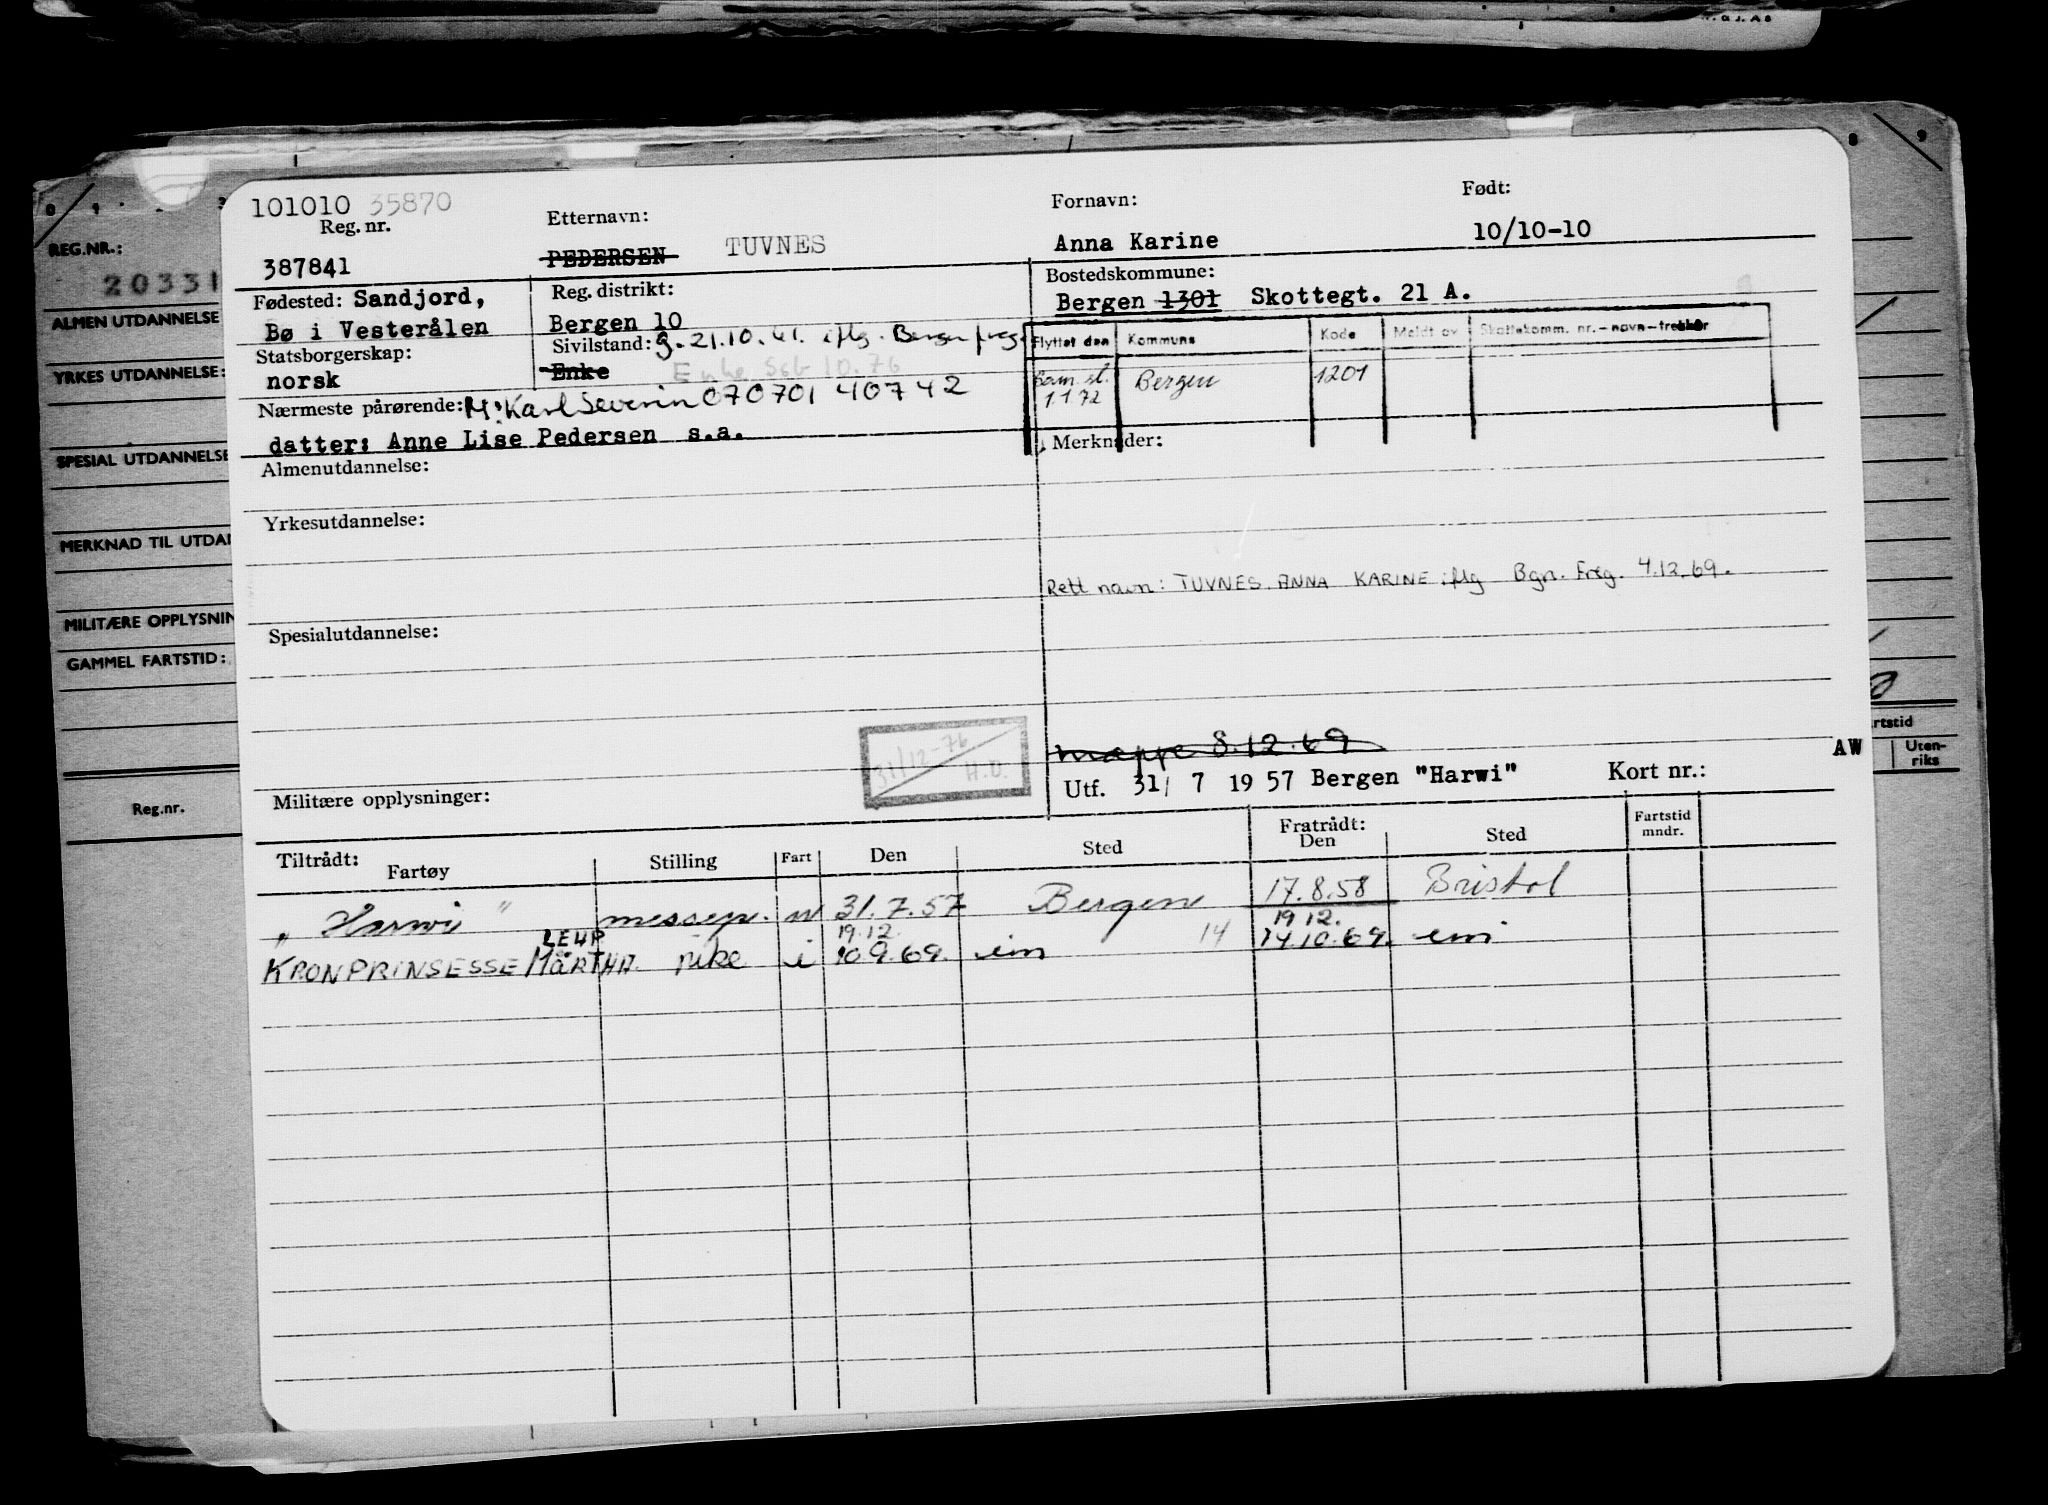 101010 35870
Reg. nr.
387841
Etternavn:
PEDERSEN TUVNES
Fornavn:
Anna Karine
Født:
10/10-10
Fødested: Sandjord,
Bø i Vesterålen
Reg. distrikt:
Bergen 10
Bostedskommune:
Bergen 1301 Skottegt. 21 A.
Statsborgerskap:
norsk
Sivilstand: g. 21.10.61. iflg. Bergen freg
Enke Enke Ssb 10.76
Flyttet den Kommune Kode Meldt av Skattekomm. nr.-navn-trekkår
1.1.72 Bergen 1201
Nærmeste pårørende: M: Karl Severin 070701 40742
datter: Anne Lise Pedersen s.a.
Merknader:
Almenutdannelse:
Yrkesutdannelse:
Rett navn: TUVNES, ANNA KARINE iflg Bgn. Freg. 4.12.69.
Spesialutdannelse:
31/12-76
H.D.
mappe 8.12.69
Militære opplysninger:
Utf. 31/ 7 1957 Bergen "Harwi" Kort nr.:
AW
Tiltrådt:
Fartøy Stilling Fart Den Sted
Fratrådt:
Den Sted
Fartstid
mndr.
"Harwi" messep. u 31.7.57 Bergen 17.8.58 Bristol
LEHP 19.12. 14 19.12.
KRONPRINSESSE MÄRTHA. pike i 10.9.69. 14.10.69.
REG.NR.:
20331
ALMEN UTDANNELSE
YRKES UTDANNELSE:
SPESIAL UTDANNELSE
MERKNAD TIL UTDAN
MILITÆRE OPPLYSNIN
GAMMEL FARTSTID:
Reg.nr.
rtstid
Uten-
riks
8 9